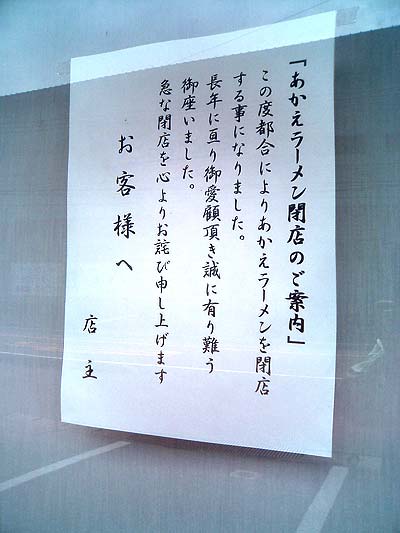 「あかえラーメン閉店のご案内」
この度都合によりあかえラーメンを閉店
する事になりました。
長年に亘り御愛顧頂き誠に有り難う
御座いました。
急な閉店を心よりお詫び申し上げます
お客様へ
店主